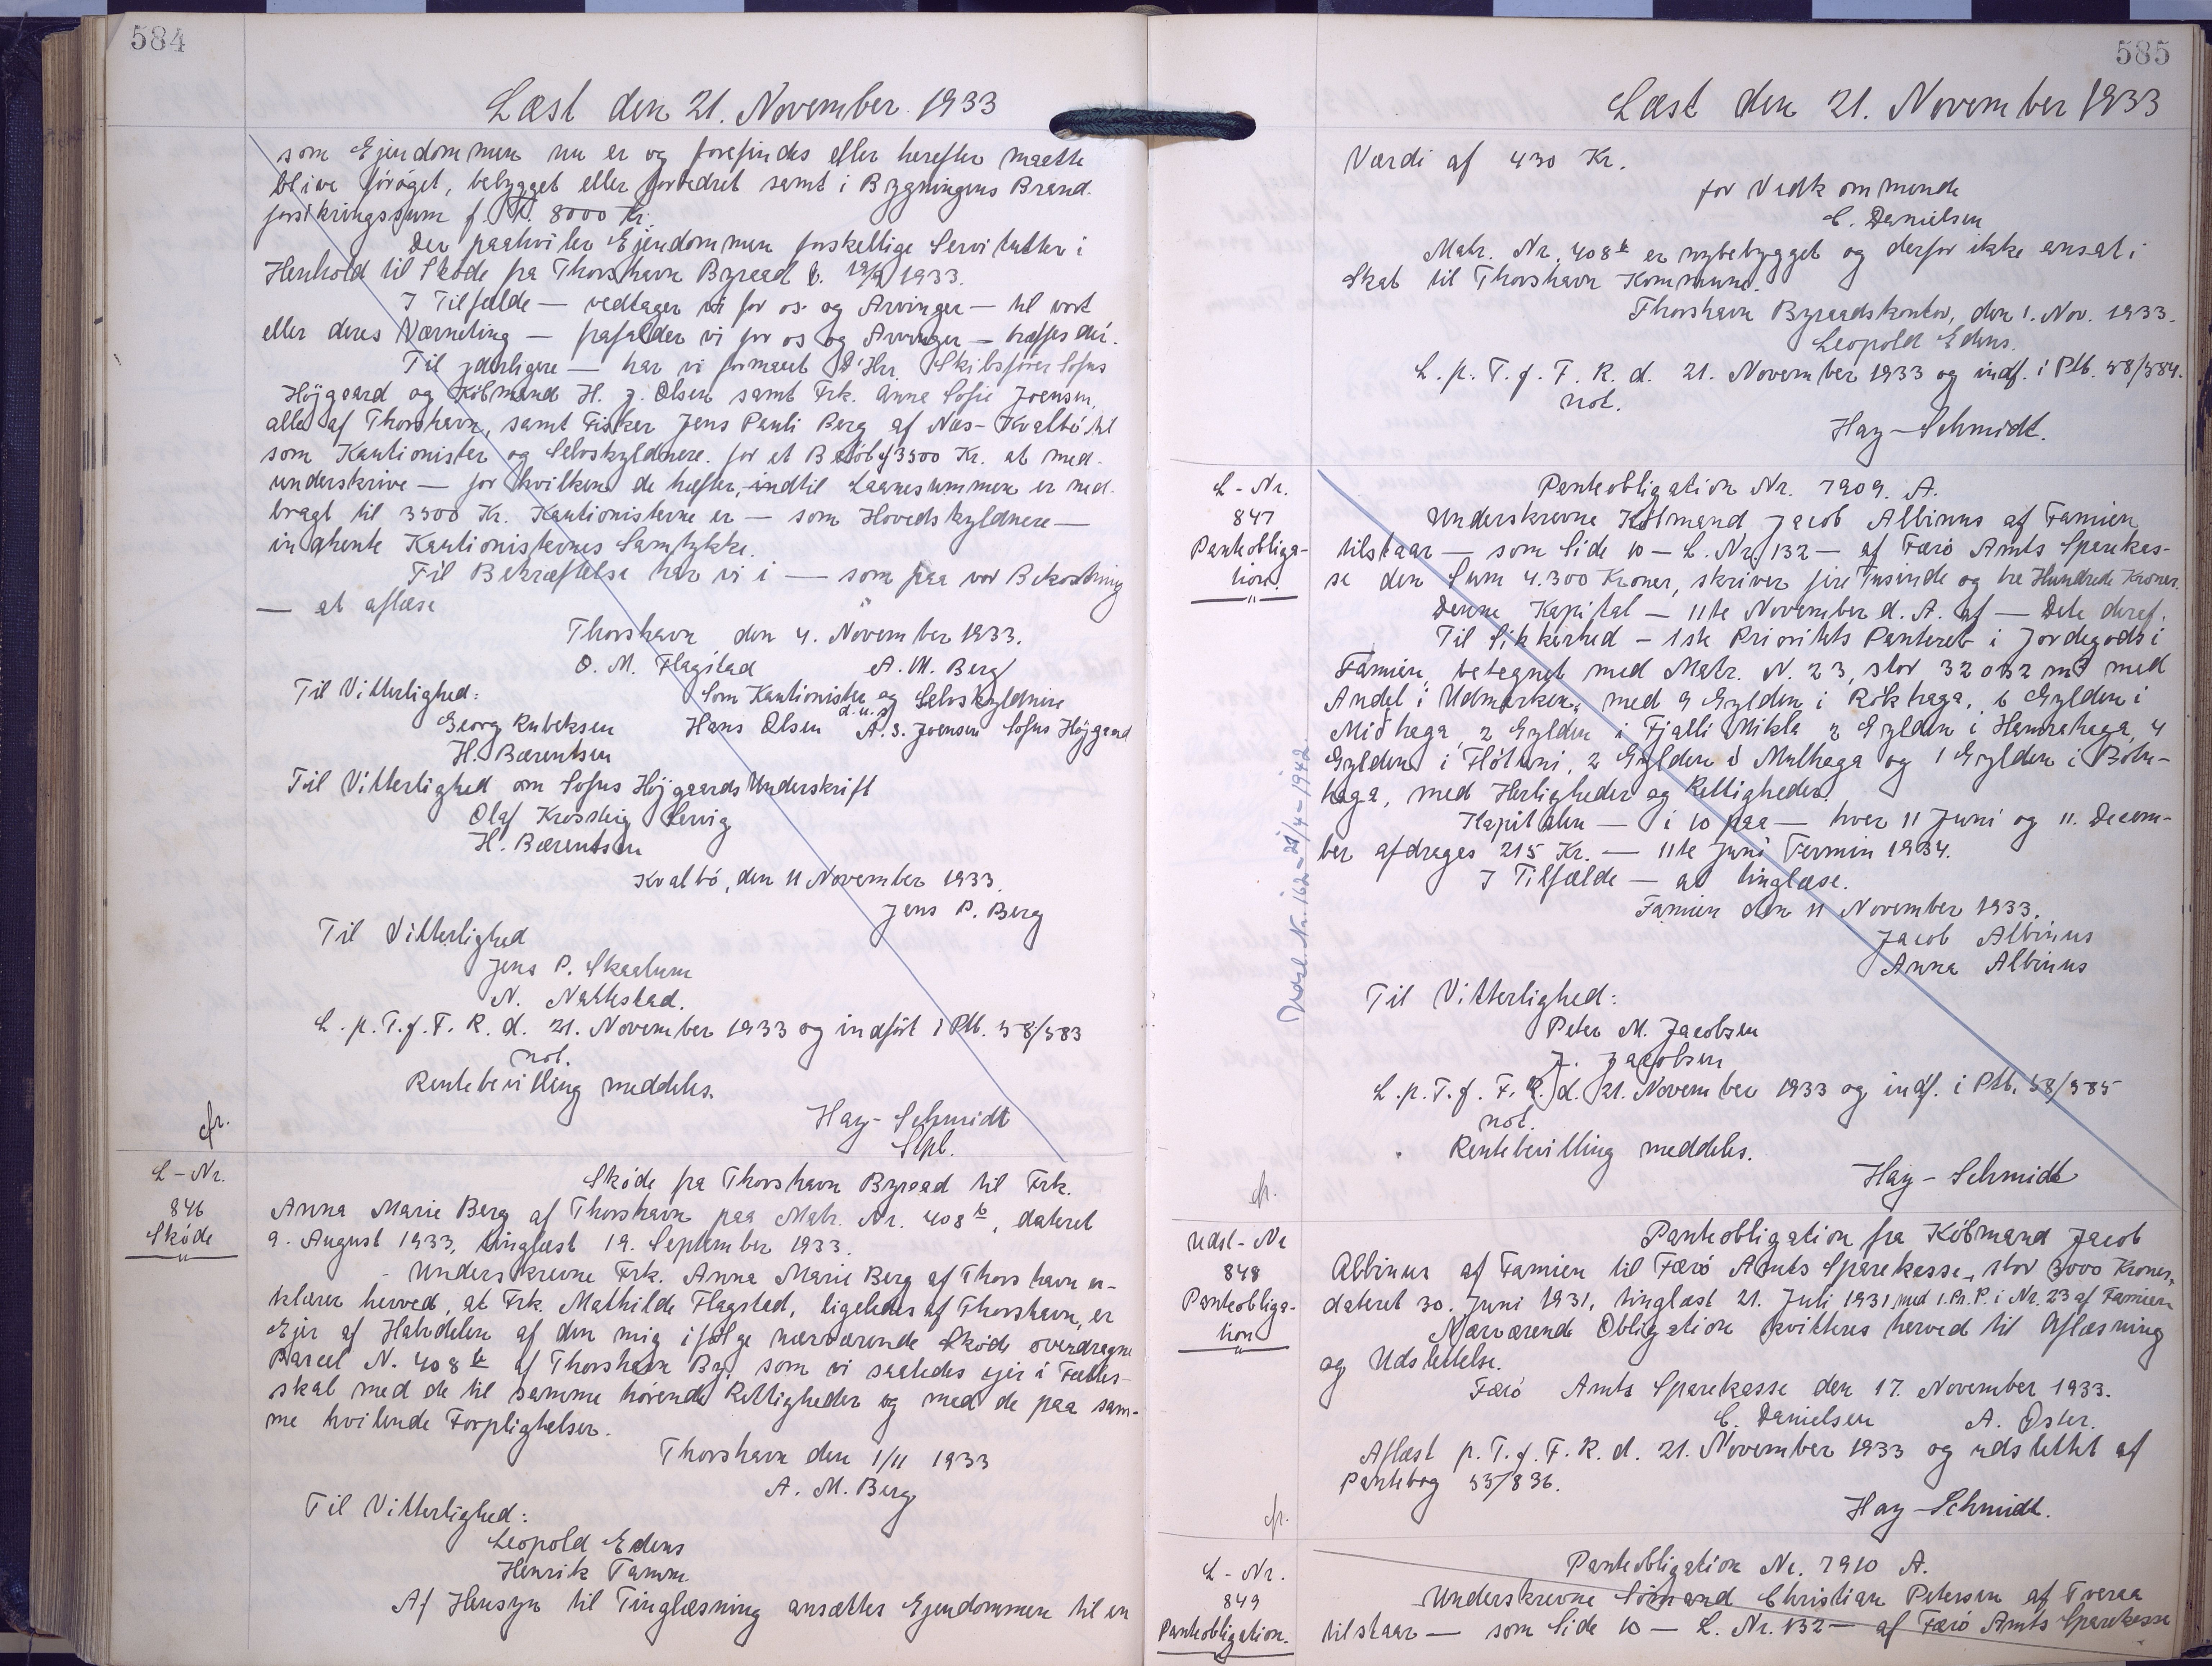 584
Læst den 21. November 1933
som Ejendommen nu er og forefindes eller herefter maatte
blive forøget, bebygget eller forbedret samt i Bygningens Brand-
forsikringssum f. T. 8000 Kr.
Der paahviler Ejendommen forskellige Servitutter i
Henhold til Skøde fra Thorshavn Byraad t. 19/9 1933.
I Tilfælde — vedtager vi for os og Arvinger — til vort
eller deres Værneting — frafalder vi for os og Arvinger — træffes dér.
Til yderligere — har vi formaaet D'Hrr. Skibsfører Sofus
Højgaard og Købmand H. J. Olsen samt Frk. Anna Sofie Joensen,
alle af Thorshavn, samt Fisker Jens Pauli Berg af Næs-Kvalbø til
som Kautionister og Selvskyldnere for et Beløb af 3500 Kr. at med-
underskrive — for hvilken de hæfter, indtil Laanesummen er ned-
bragt til 3500 Kr. Kautionisterne er — som Hovedskyldnere —
indhente Kautionisternes Samtykke.
Til Bekræftelse har vi i — som paa vor Bekostning
— at aflæse
Thorshavn den 4. November 1933.
O. M. Flagstad A. M. Berg
Til Vitterlighed: Som Kautionister og Selvskyldnere
d.u.s.
Georg Rubeksen Hans Olsen A. S. Joensen Sofus Højgaard
H. Bærentsen
Til Vitterlighed om Sofus Højgaards Underskrift
Olaf Krossteig Servig
H. Bærentsen
Kvalbø, den 11 November 1933.
Jens P. Berg
Til Vitterlighed
Jens P. Skaalum
N. Nattestad.
L. p. T. f. F. R. d. 21. November 1933 og indført i Ptb. 58/583
not.
Rentebevilling meddeles.
Hay-Schmidt
Spl.
cfr.
L-Nr.
846
Skøde
Skøde fra Thorshavn Byraad til Frk.
Anna Marie Berg af Thorshavn paa Matr. Nr. 408 b, dateret
9. August 1933, tinglæst 19. September 1933.
Underskrevne Frk. Anna Marie Berg af Thorshavn er-
klærer herved, at Frk. Mathilde Flagsted, ligeledes af Thorshavn, er
Ejer af Halvdelen af den mig ifølge nærværende Skøde overdragne
Parcel N. 408 b af Thorshavn By, som vi saaledes ejer i Fælles-
skab med de til samme hørende Rettigheder og med de paa sam-
me hvilende Forpligtelser.
Thorshavn den 1/11 1933
A. M. Berg
Til Vitterlighed:
Leopold Edens
Henrik Tamm
Af Hensyn til Tinglæsning ansættes Ejendommen til en
585
Læst den 21. November 1933
Værdi af 430 Kr.
for Vedkommende
C. Danielsen
Matr. Nr. 408 b er nybebygget og derfor ikke ansat i
Skat til Thorshavn Kommune.
Thorshavn Byraadskontor, den 1. Nov. 1933.
Leopold Edens.
L. p. T. f. F. R. d. 21. November 1933 og indf. i Ptb. 58/584.
not.
Hay-Schmidt.
L-Nr.
847
Panteobliga-
tion
Panteobligation Nr. 7909. A.
Underskrevne Købmand Jacob Albinus af Famien
tilstaar — som Side 10 — L. Nr. 132 — af Færø Amts Sparekas-
se den Sum 4.300 Kroner, skriver fire Tusinde og tre Hundrede Kroner.
Denne Kapital — 11te November d. A. af — Dele deraf.
Til Sikkerhed — 1ste Prioritets Panteret i Jordegods i
Famien, betegnet med Matr. N. 23, stor 32032 m² med
Andel i Udmarken, med 9 Gylden i Rókhaga, 6 Gylden i
Miðhaga, 2 Gylden i Fjalli Mikla 2 Gylden i Hamrahaga, 4
Gylden i Fløtuni, 2 Gylden i Mulhaga og 1 Gylden i Bøln-
haga, med Herligheder og Rettigheder.
Kapitalen — i 10 paa — hver 11 Juni og 11. Decem-
ber afdrages 215 Kr. — 11te Juni Termin 1934.
I Tilfælde — at tinglæse.
Famien den 11 November 1933.
Jacob Albinus
Anna Albinus
Til Vitterlighed:
Peter M. Jacobsen
J. Jacobsen
L. p. T. f. F. R. d. 21. November 1933 og indf. i Ptb. 58/585
not.
Rentebevilling meddeles.
Hay-Schmidt
cfr.
Udsl. Nr. 162 - 21/4 - 1942.
Udsl-Nr
848
Panteobliga-
tion
Panteobligation fra Købmand Jacob
Albinus af Famien til Færø Amts Sparekasse, stor 3000 Kroner,
dateret 30. Juni 1931, tinglæst 21. Juli 1931 med 1. Pr. P. i Nr. 23 af Famien
Nærværende Obligation kvitteres herved til Aflæsning
og Udslettelse.
Færø Amts Sparekasse den 17. November 1933.
C. Danielsen A. Øster.
Aflæst p. T. f. F. R. d. 21. November 1933 og udslettet af
Pantebog 53/836.
Hay-Schmidt.
cfr.
L-Nr.
849
Panteobligation.
Panteobligation Nr. 7910 A.
Underskrevne Sømand Christian Petersen af Tveraa
tilstaar — som Side 10 — L. Nr. 132 — af Færø Amts Sparekasse